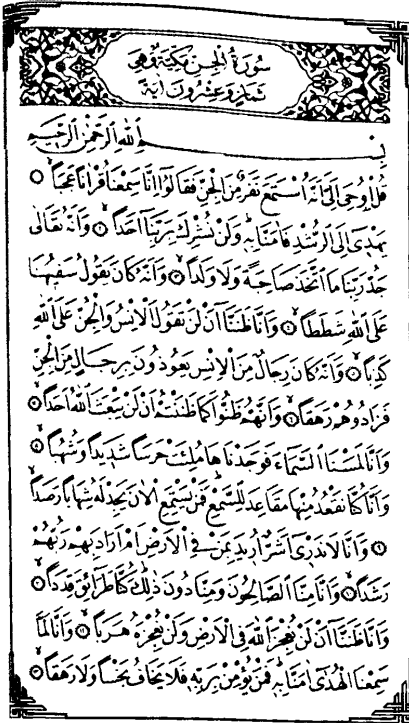 سُورَةُ الْجِنِّ مَكِّيَّةٌ وَهِيَ
ثَمَانٍ وَعِشْرُونَ اٰيَةً
بِسْمِ اللّٰهِ الرَّحْمٰنِ الرَّحِيمِ
قُلْ اُوحِيَ اِلَيَّ اَنَّهُ اسْتَمَعَ نَفَرٌ مِنَ الْجِنِّ فَقَالُٓوا اِنَّا سَمِعْنَا قُرْاٰنًا عَجَبًا ۝
يَهْدِٓي اِلَى الرُّشْدِ فَاٰمَنَّا بِهِ وَلَنْ نُشْرِكَ بِرَبِّنَٓا اَحَدًا ۝ وَاَنَّهُ تَعَالٰى
جَدُّ رَبِّنَا مَا اتَّخَذَ صَاحِبَةً وَلَا وَلَدًا ۝ وَاَنَّهُ كَانَ يَقُولُ سَفِيهُنَا
عَلَى اللّٰهِ شَطَطًا ۝ وَاَنَّا ظَنَنَّٓا اَنْ لَنْ تَقُولَ الْاِنْسُ وَالْجِنُّ عَلَى اللّٰهِ
كَذِبًا ۝ وَاَنَّهُ كَانَ رِجَالٌ مِنَ الْاِنْسِ يَعُوذُونَ بِرِجَالٍ مِنَ الْجِنِّ
فَزَادُوهُمْ رَهَقًا ۝ وَاَنَّهُمْ ظَنُّوا كَمَا ظَنَنْتُمْ اَنْ لَنْ يَبْعَثَ اللّٰهُ اَحَدًا ۝
وَاَنَّا لَمَسْنَا السَّمَٓاءَ فَوَجَدْنَاهَا مُلِئَتْ حَرَسًا شَدِيدًا وَشُهُبًا ۝
وَاَنَّا كُنَّا نَقْعُدُ مِنْهَا مَقَاعِدَ لِلسَّمْعِ فَمَنْ يَسْتَمِعِ الْاٰنَ يَجِدْ لَهُ شِهَابًا رَصَدًا
۝ وَاَنَّا لَا نَدْرِٓي اَشَرٌّ اُرِيدَ بِمَنْ فِي الْاَرْضِ اَمْ اَرَادَ بِهِمْ رَبُّهُمْ
رَشَدًا ۝ وَاَنَّا مِنَّا الصَّالِحُونَ وَمِنَّا دُونَ ذٰلِكَ كُنَّا طَرَٓائِقَ قِدَدًا ۝
وَاَنَّا ظَنَنَّٓا اَنْ لَنْ نُعْجِزَ اللّٰهَ فِي الْاَرْضِ وَلَنْ نُعْجِزَهُ هَرَبًا ۝ وَاَنَّا لَمَّا
سَمِعْنَا الْهُدٰٓى اٰمَنَّا بِهِ فَمَنْ يُؤْمِنْ بِرَبِّهِ فَلَا يَخَافُ بَخْسًا وَلَا رَهَقًا ۝